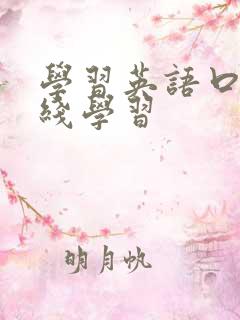 學習英語口
綫學習
明月帆